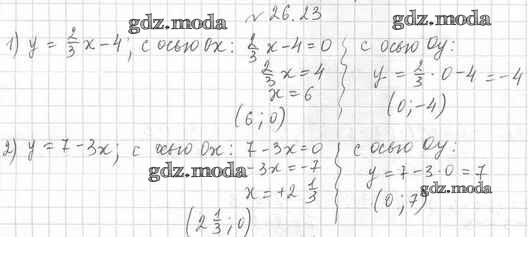 № 26.23
gdz.moda gdz.moda
1) y = 2/3 x - 4; с осью Ox: 2/3 x - 4 = 0
2/3 x = 4
x = 6
(6; 0)
с осью Oy:
y = 2/3 · 0 - 4 = -4
(0; -4)
2) y = 7 - 3x; с осью Ox: 7 - 3x = 0
gdz.moda
-3x = -7
x = +2 1/3
(2 1/3; 0)
с осью Oy:
y = 7 - 3 · 0 = 7
gdz.moda
(0; 7)